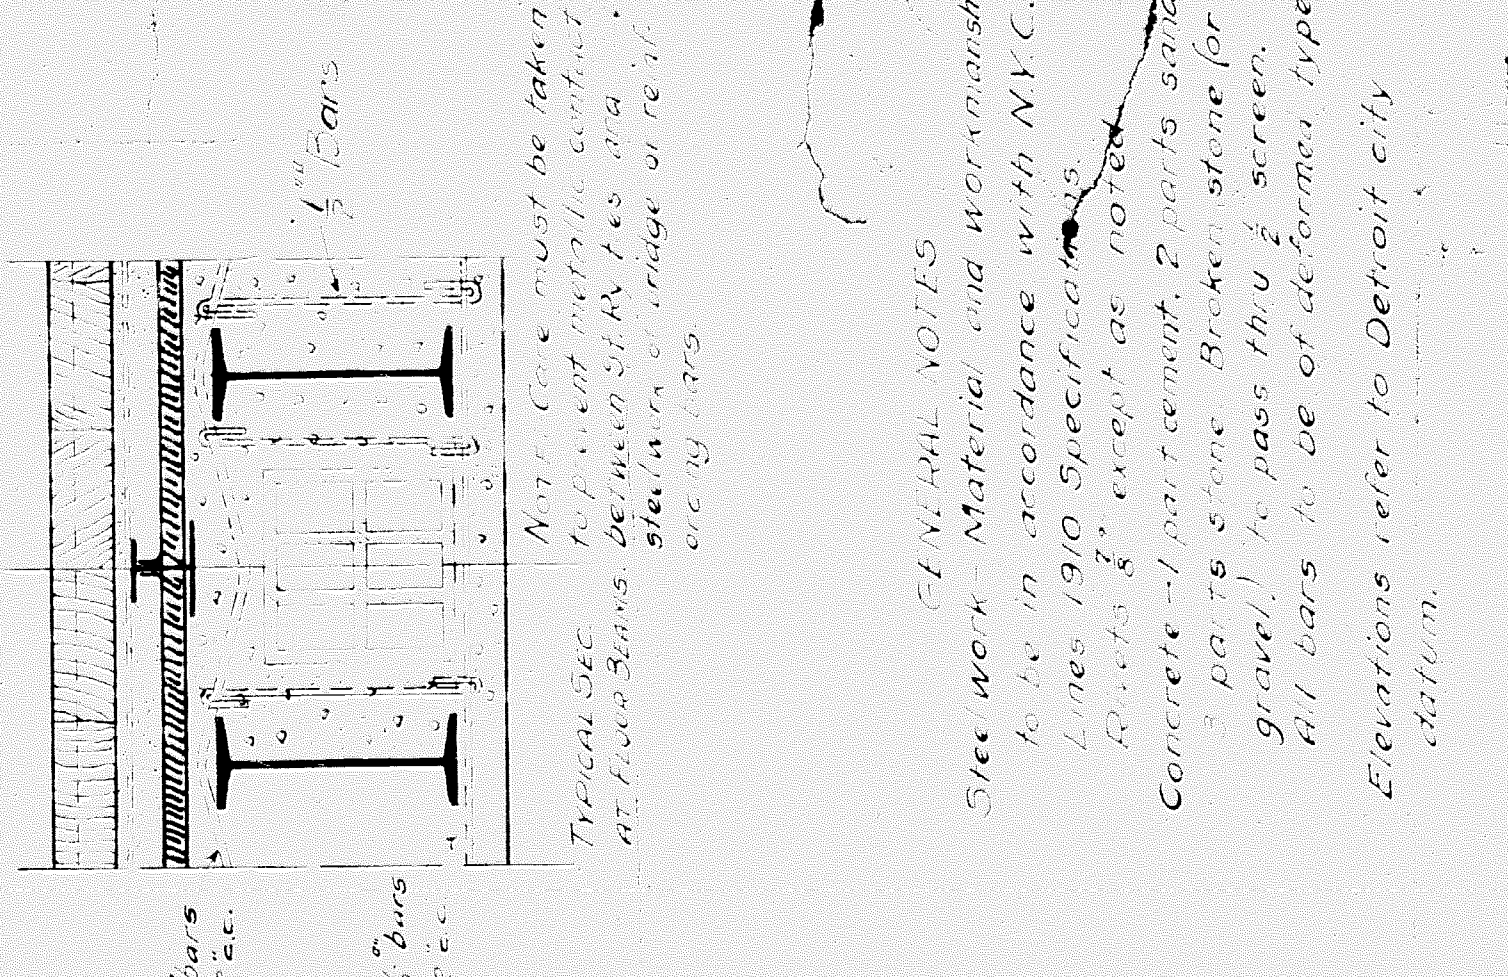 1/2"" Bars
bars
" c.c.
" bars
" c.c.
TYPICAL SEC.
AT FLOOR BEAMS.
Care must be taken
to prevent metallic contact
between St. Ry. ties and
steelwork of bridge or reinf-
orcing bars
GENERAL NOTES
Steelwork - Material and workmansh
to be in accordance with N.Y.C.
Lines 1910 Specifications.
Rivets 7/8" except as noted
Concrete - 1 part cement, 2 parts sand
parts stone Broken stone (or
gravel) to pass thru 1/2 screen.
All bars to be of deformed type
Elevations refer to Detroit city
datum.